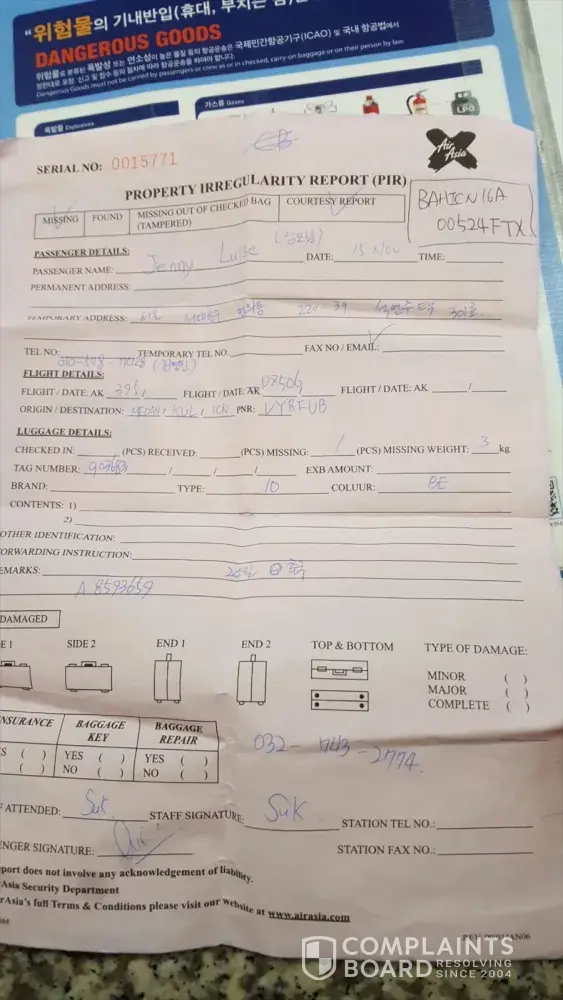 “위험물의 기내반입(휴대, 부치는 짐)
DANGEROUS GOODS
위험물로 분류된 폭발성 또는 연소성이 높은 물질 등의 항공운송은 국제민간항공기구(ICAO) 및 국내 항공법에서
정한대로 포장, 신고 및 접수 등의 절차에 따라 항공운송을 하여야 합니다.
Dangerous Goods must not be carried by passengers or crew as or in checked, carry-on baggage or on their person by law.
폭발물 Explosives
가스류 Gases
LPG
Air Asia
SERIAL NO: 0015771
PROPERTY IRREGULARITY REPORT (PIR)
BAHICN16A
00524FTX
MISSING FOUND MISSING OUT OF CHECKED BAG (TAMPERED) COURTESY REPORT
PASSENGER DETAILS:
PASSENGER NAME: Jenny Luise DATE: 15 Nov TIME:
PERMANENT ADDRESS:
TEMPORARY ADDRESS: 220 39 301호
TEL NO: TEMPORARY TEL NO: FAX NO / EMAIL:
FLIGHT DETAILS:
FLIGHT / DATE: AK 396/ FLIGHT / DATE: AK D7506 FLIGHT / DATE: AK /
ORIGIN / DESTINATION: MEDAN / KUL / ICN PNR: VYRFUB
LUGGAGE DETAILS:
CHECKED IN: (PCS) RECEIVED: (PCS) MISSING: 1 (PCS) MISSING WEIGHT: 3 kg
TAG NUMBER: / / / EXB AMOUNT:
BRAND: TYPE: 10 COLUUR: BE
CONTENTS: 1)
2)
OTHER IDENTIFICATION:
FORWARDING INSTRUCTION:
EMARKS: 24일
A 8593659
DAMAGED
E 1 SIDE 2 END 1 END 2 TOP & BOTTOM TYPE OF DAMAGE:
MINOR ( )
MAJOR ( )
COMPLETE ( )
NSURANCE BAGGAGE KEY BAGGAGE REPAIR
S ( ) YES ( ) YES ( )
( ) NO ( ) NO ( )
032 - 743 - 2774
F ATTENDED: Suk STAFF SIGNATURE: Suk STATION TEL NO.:
ENGER SIGNATURE: STATION FAX NO.:
port does not involve any acknowledgement of liability.
Asia Security Department
rAsia's full Terms & Conditions please visit our website at www.airasia.com
COMPLAINTS
BOARD RESOLVING SINCE 2004